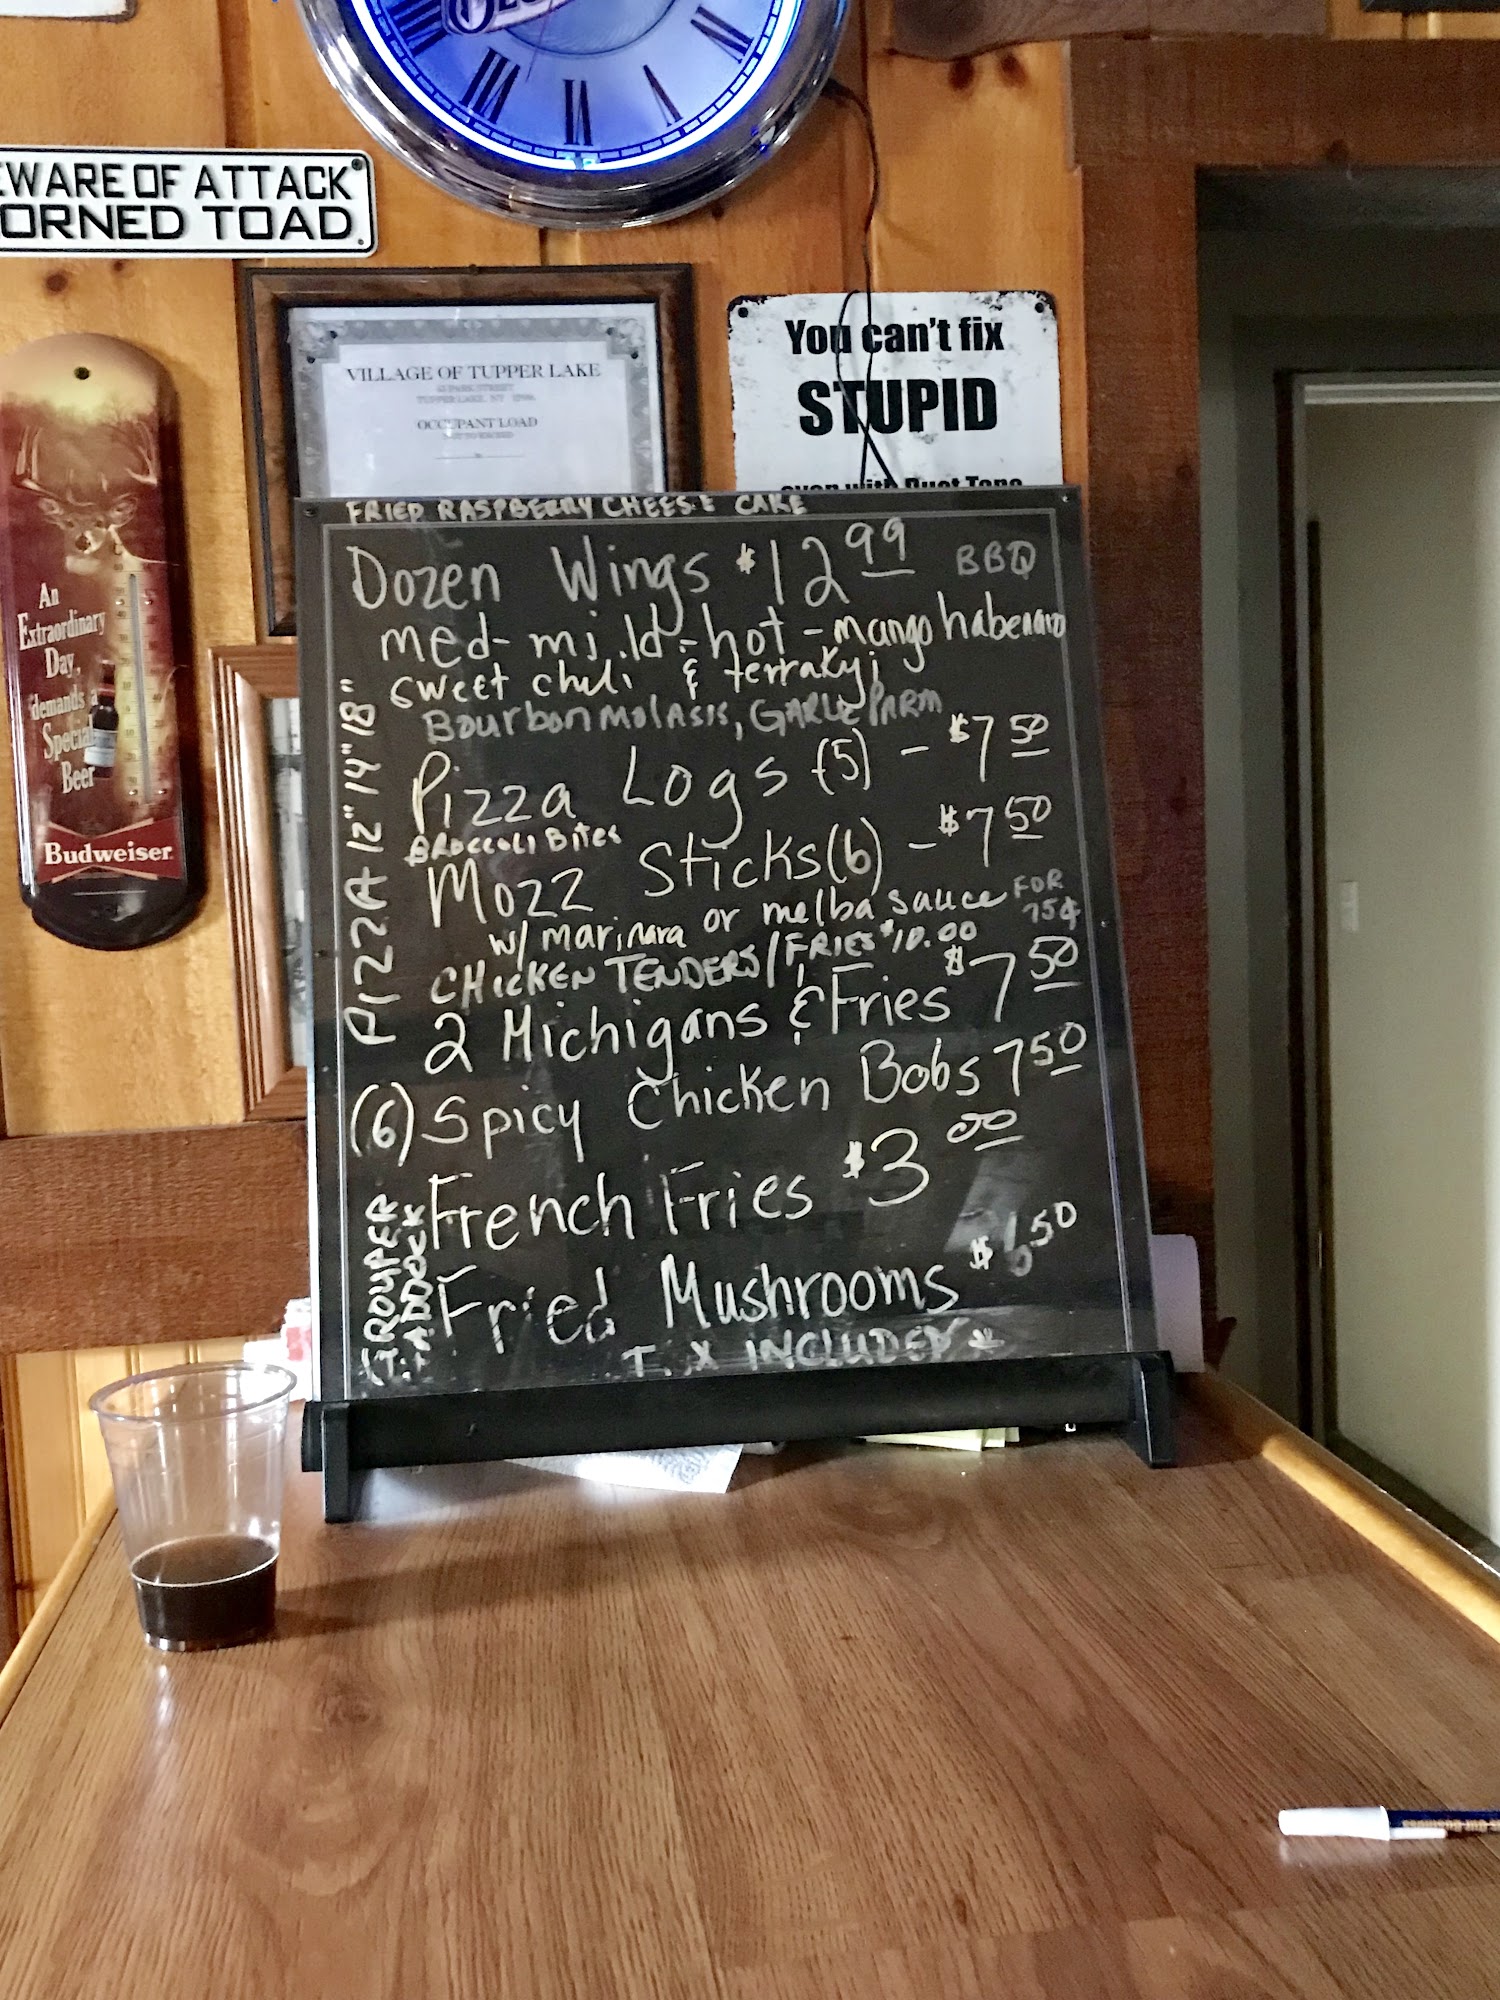 EWARE OF ATTACK
ORNED TOAD
VILLAGE OF TUPPER LAKE
OCCUPANT LOAD
You can't fix
STUPID
even with Duct Tape
An
Extraordinary
Day,
demands a
Special
Beer
Budweiser
FRIED RASPBERRY CHEESE CAKE
Dozen Wings $12.99 BBQ
med - mild - hot - mango habenaro
sweet chili & terrakyi
Bourbon molasis, GARLIC PARM
Pizza Logs (5) - $7.50
BROCCOLI BITES
Mozz Sticks (6) - $7.50
w/ marinara or melba sauce FOR 75¢
CHICKEN TENDERS / FRIES $10.00
2 Michigans & Fries $7.50
(6) Spicy Chicken Bobs 7.50
French Fries $3.00
Fried Mushrooms $6.50
T X INCLUDED
PIZZA 12" 14" 18"
GROUPER
HADDOCK